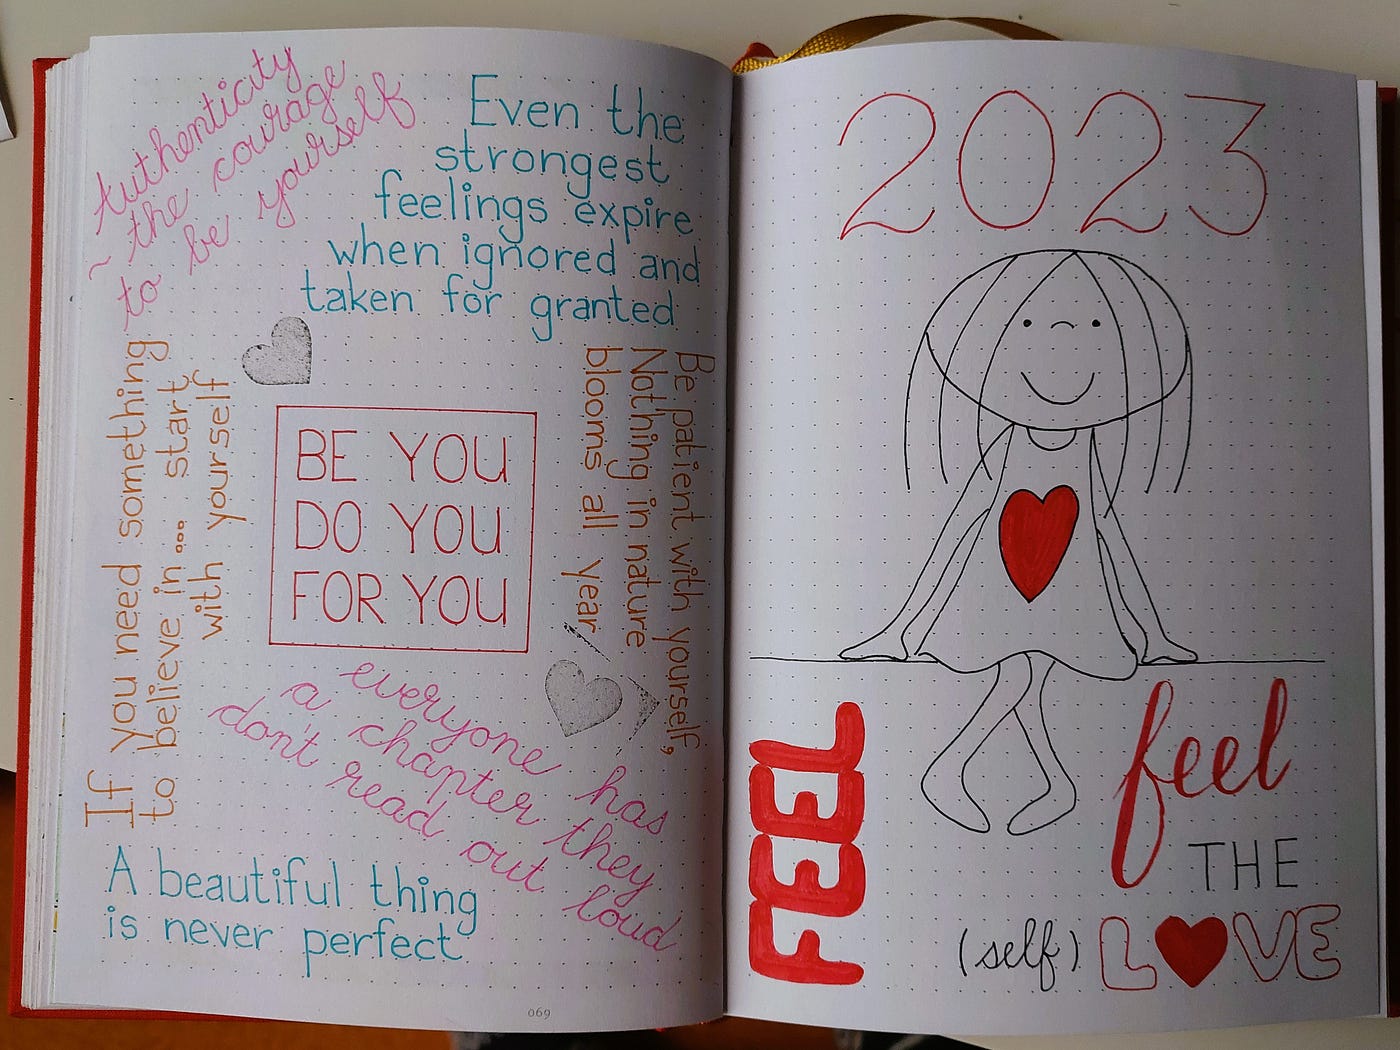 Authenticity
~ the courage
to be yourself
Even the
strongest
feelings expire
when ignored and
taken for granted
If you need something
to believe in... start
with yourself
BE YOU
DO YOU
FOR YOU
Be patient with yourself,
Nothing in nature
blooms all year
everyone has
a chapter they
don't read out loud
A beautiful thing
is never perfect
069
2023
FEEL
feel
THE
(self) L♥VE